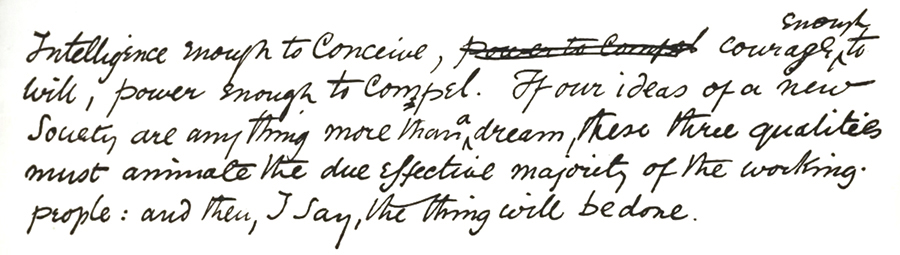 Intelligence enough to conceive, power to compel courage enough to
will, power enough to compel. If our ideas of a new
Society are anything more than a dream, these three qualities
must animate the due effective majority of the working-
people: and then, I say, the thing will be done.